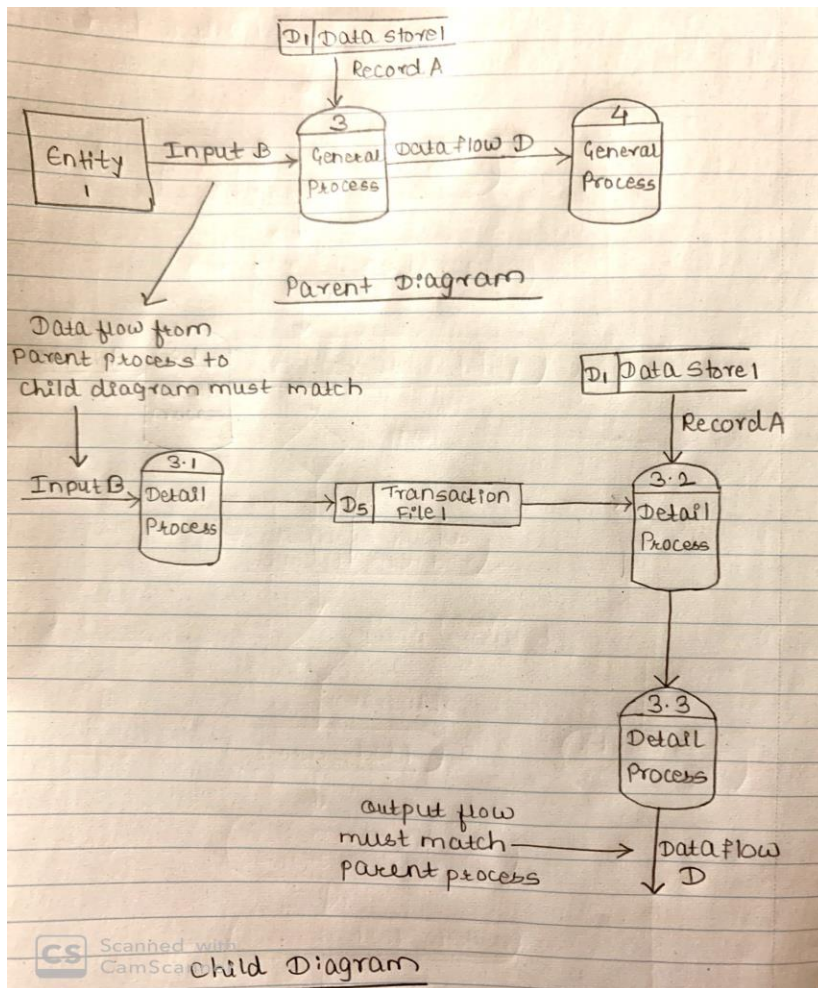 D1 Data Store1
Record A
Entity
1
Input B
3
General
Process
Data flow D
4
General
Process
Parent Diagram
Data flow from
Parent process to
child diagram must match
D1 Data Store1
Record A
Input B
3.1
Detail
Process
D5 Transaction
File1
3.2
Detail
Process
3.3
Detail
Process
output flow
must match
parent process
Data flow
D
CS Scanned with
CamScanner
Child Diagram